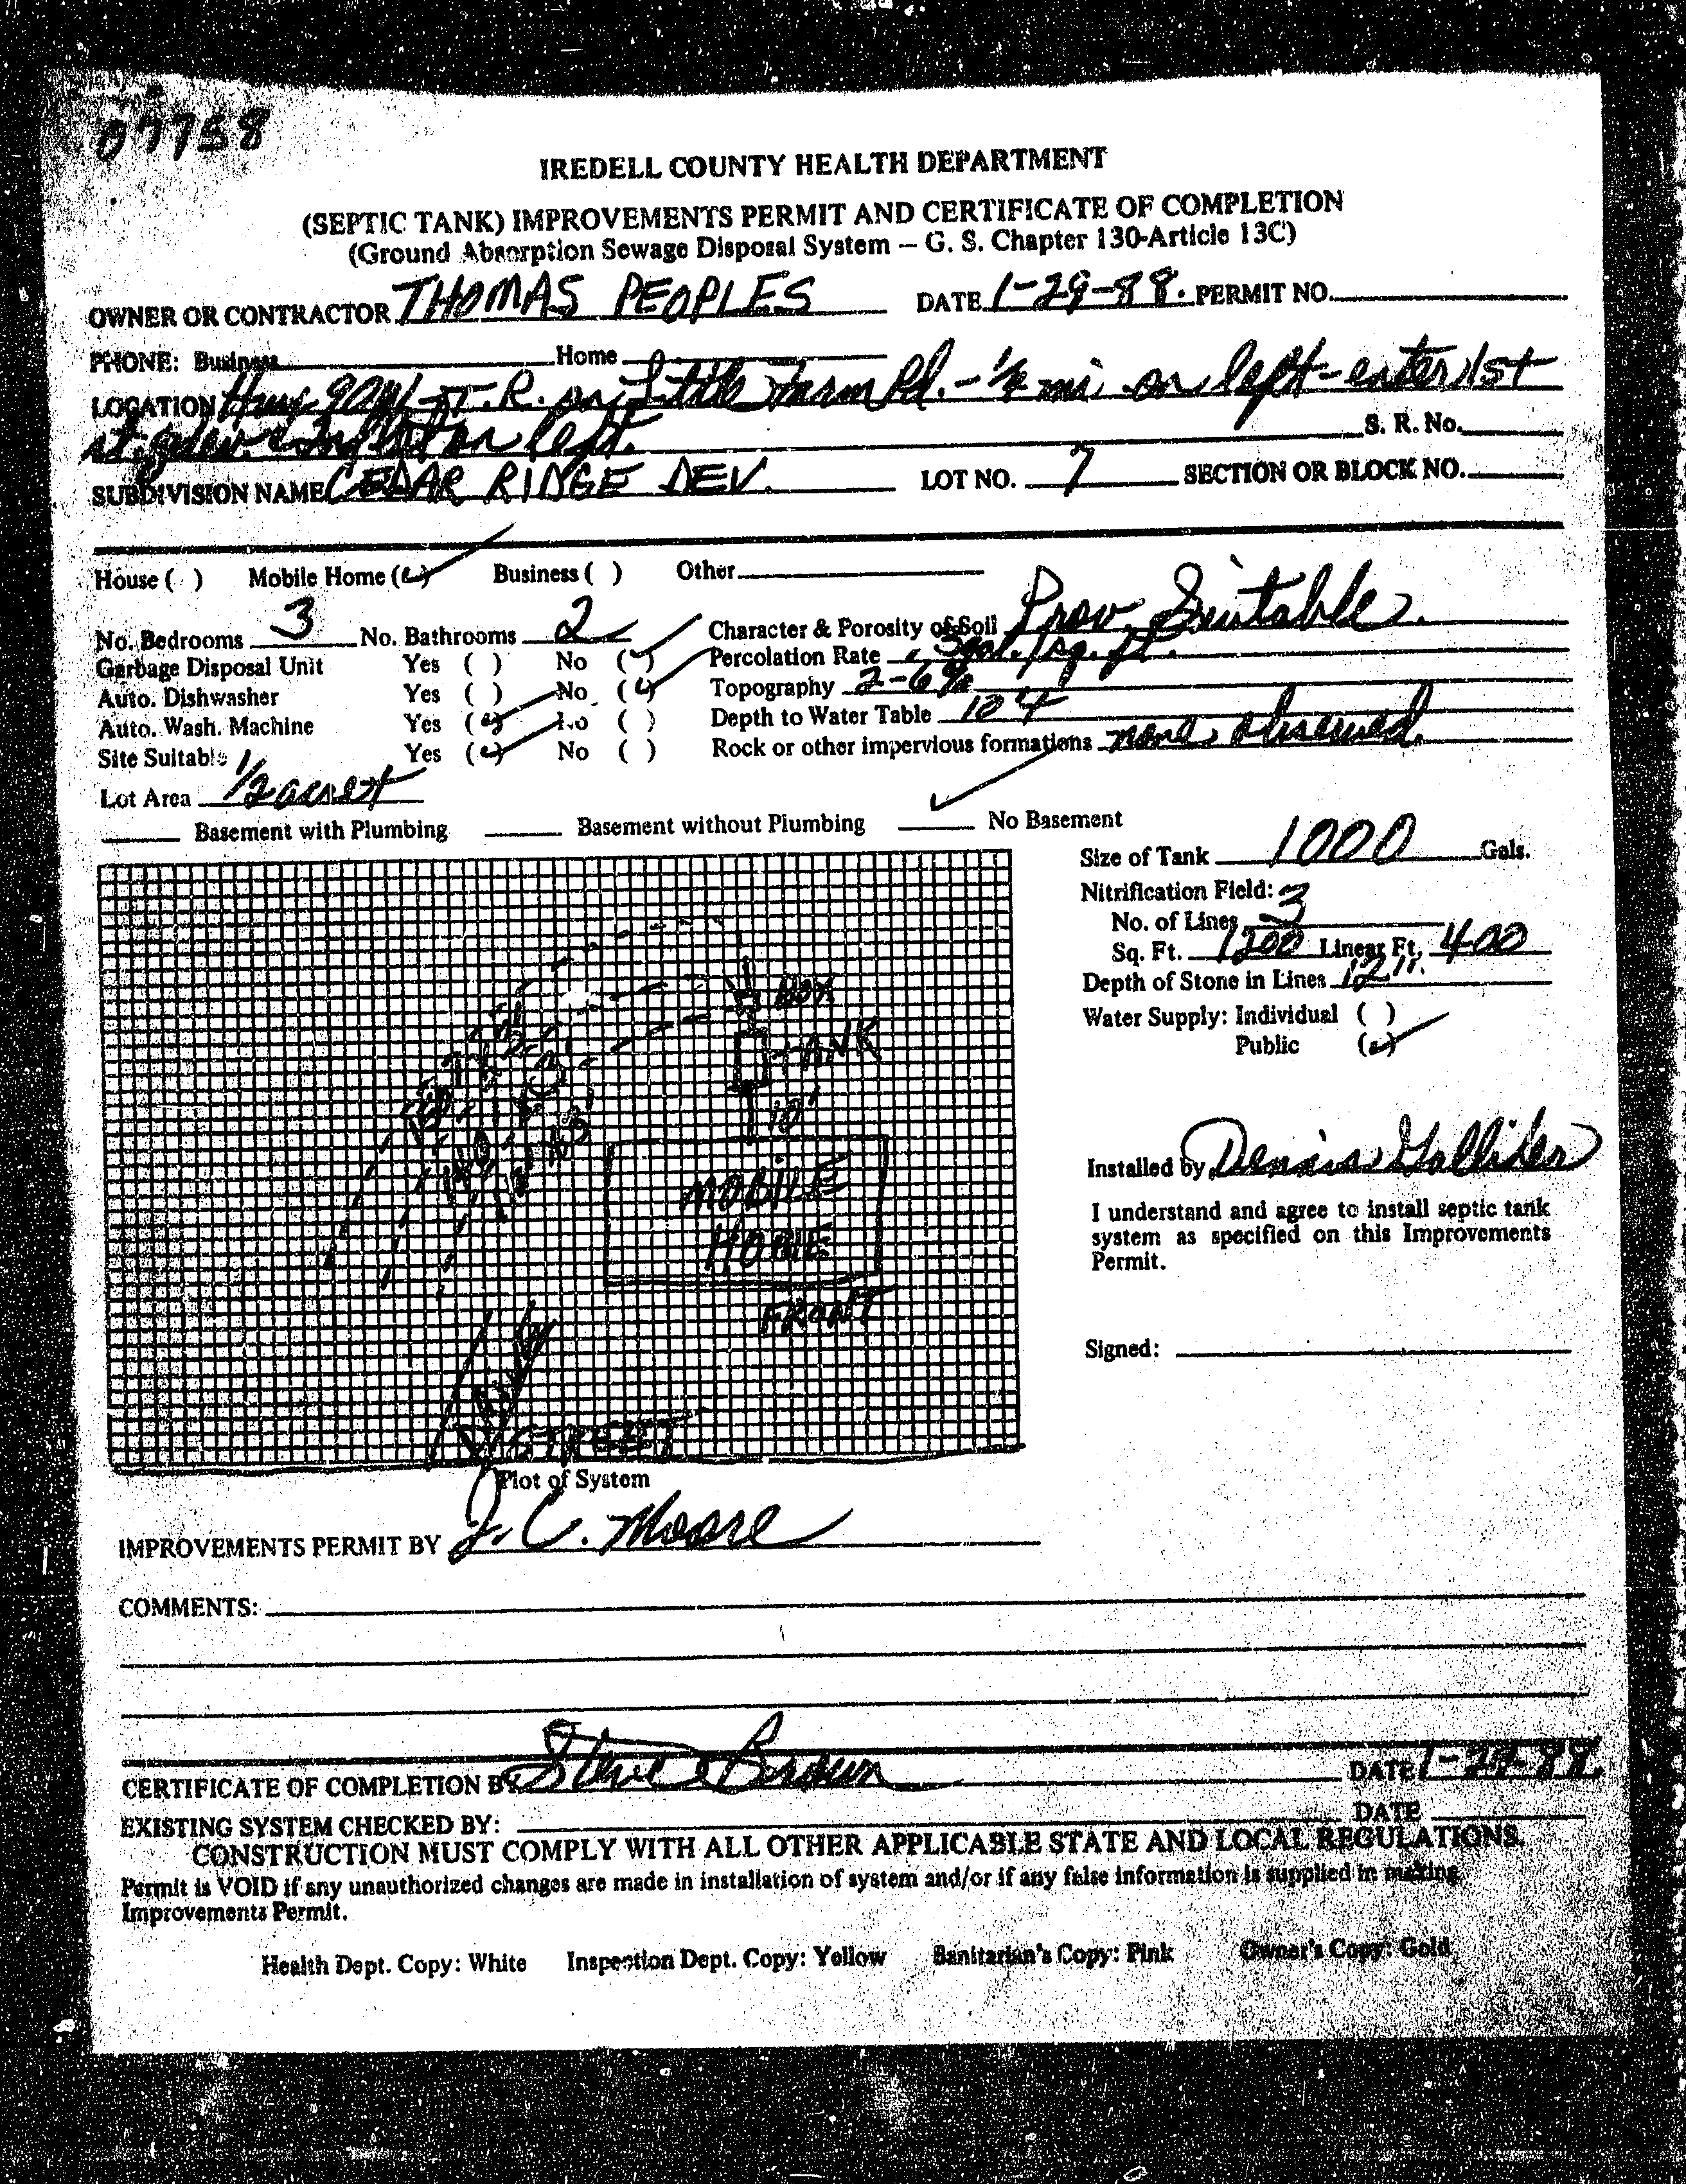 07758
IREDELL COUNTY HEALTH DEPARTMENT
(SEPTIC TANK) IMPROVEMENTS PERMIT AND CERTIFICATE OF COMPLETION
(Ground Absorption Sewage Disposal System – G. S. Chapter 130-Article 13C)
OWNER OR CONTRACTOR THOMAS PEOPLES DATE 1-29-88. PERMIT NO.
PHONE: Business Home
LOCATION Hwy 90 T.R. on Little Farm Rd. - mi. on left - enter 1st
st. on left. S. R. No.
SUBDIVISION NAME CEDAR RIDGE DEV. LOT NO. 7 SECTION OR BLOCK NO.
House ( ) Mobile Home (✓) Business ( ) Other
No. Bedrooms 3 No. Bathrooms 2 Character & Porosity of Soil Prov. Suitable.
Garbage Disposal Unit Yes ( ) No (✓) Percolation Rate .3gal./sq. ft.
Auto. Dishwasher Yes ( ) No (✓) Topography 2-6%
Auto. Wash. Machine Yes (✓) No ( ) Depth to Water Table
Site Suitable Yes (✓) No ( ) Rock or other impervious formations none observed.
Lot Area 1/2 acre+
Basement with Plumbing Basement without Plumbing ✓ No Basement
Size of Tank 1000 Gals.
Nitrification Field:
No. of Lines 3
Sq. Ft. 1200 Linear Ft. 400
Depth of Stone in Lines 12".
Water Supply: Individual ( )
Public (✓)
BOX
TANK
10'
MOBILE
HOME
FRONT
STREET
Installed by Dennis
I understand and agree to install septic tank
system as specified on this Improvements
Permit.
Signed:
Plot of System
IMPROVEMENTS PERMIT BY J. C. Moore
COMMENTS:
CERTIFICATE OF COMPLETION BY Steve Brown DATE 1-29-88
EXISTING SYSTEM CHECKED BY: DATE
CONSTRUCTION MUST COMPLY WITH ALL OTHER APPLICABLE STATE AND LOCAL REGULATIONS.
Permit is VOID if any unauthorized changes are made in installation of system and/or if any false information is supplied in making
Improvements Permit.
Health Dept. Copy: White Inspection Dept. Copy: Yellow Sanitarian's Copy: Pink Owner's Copy: Gold